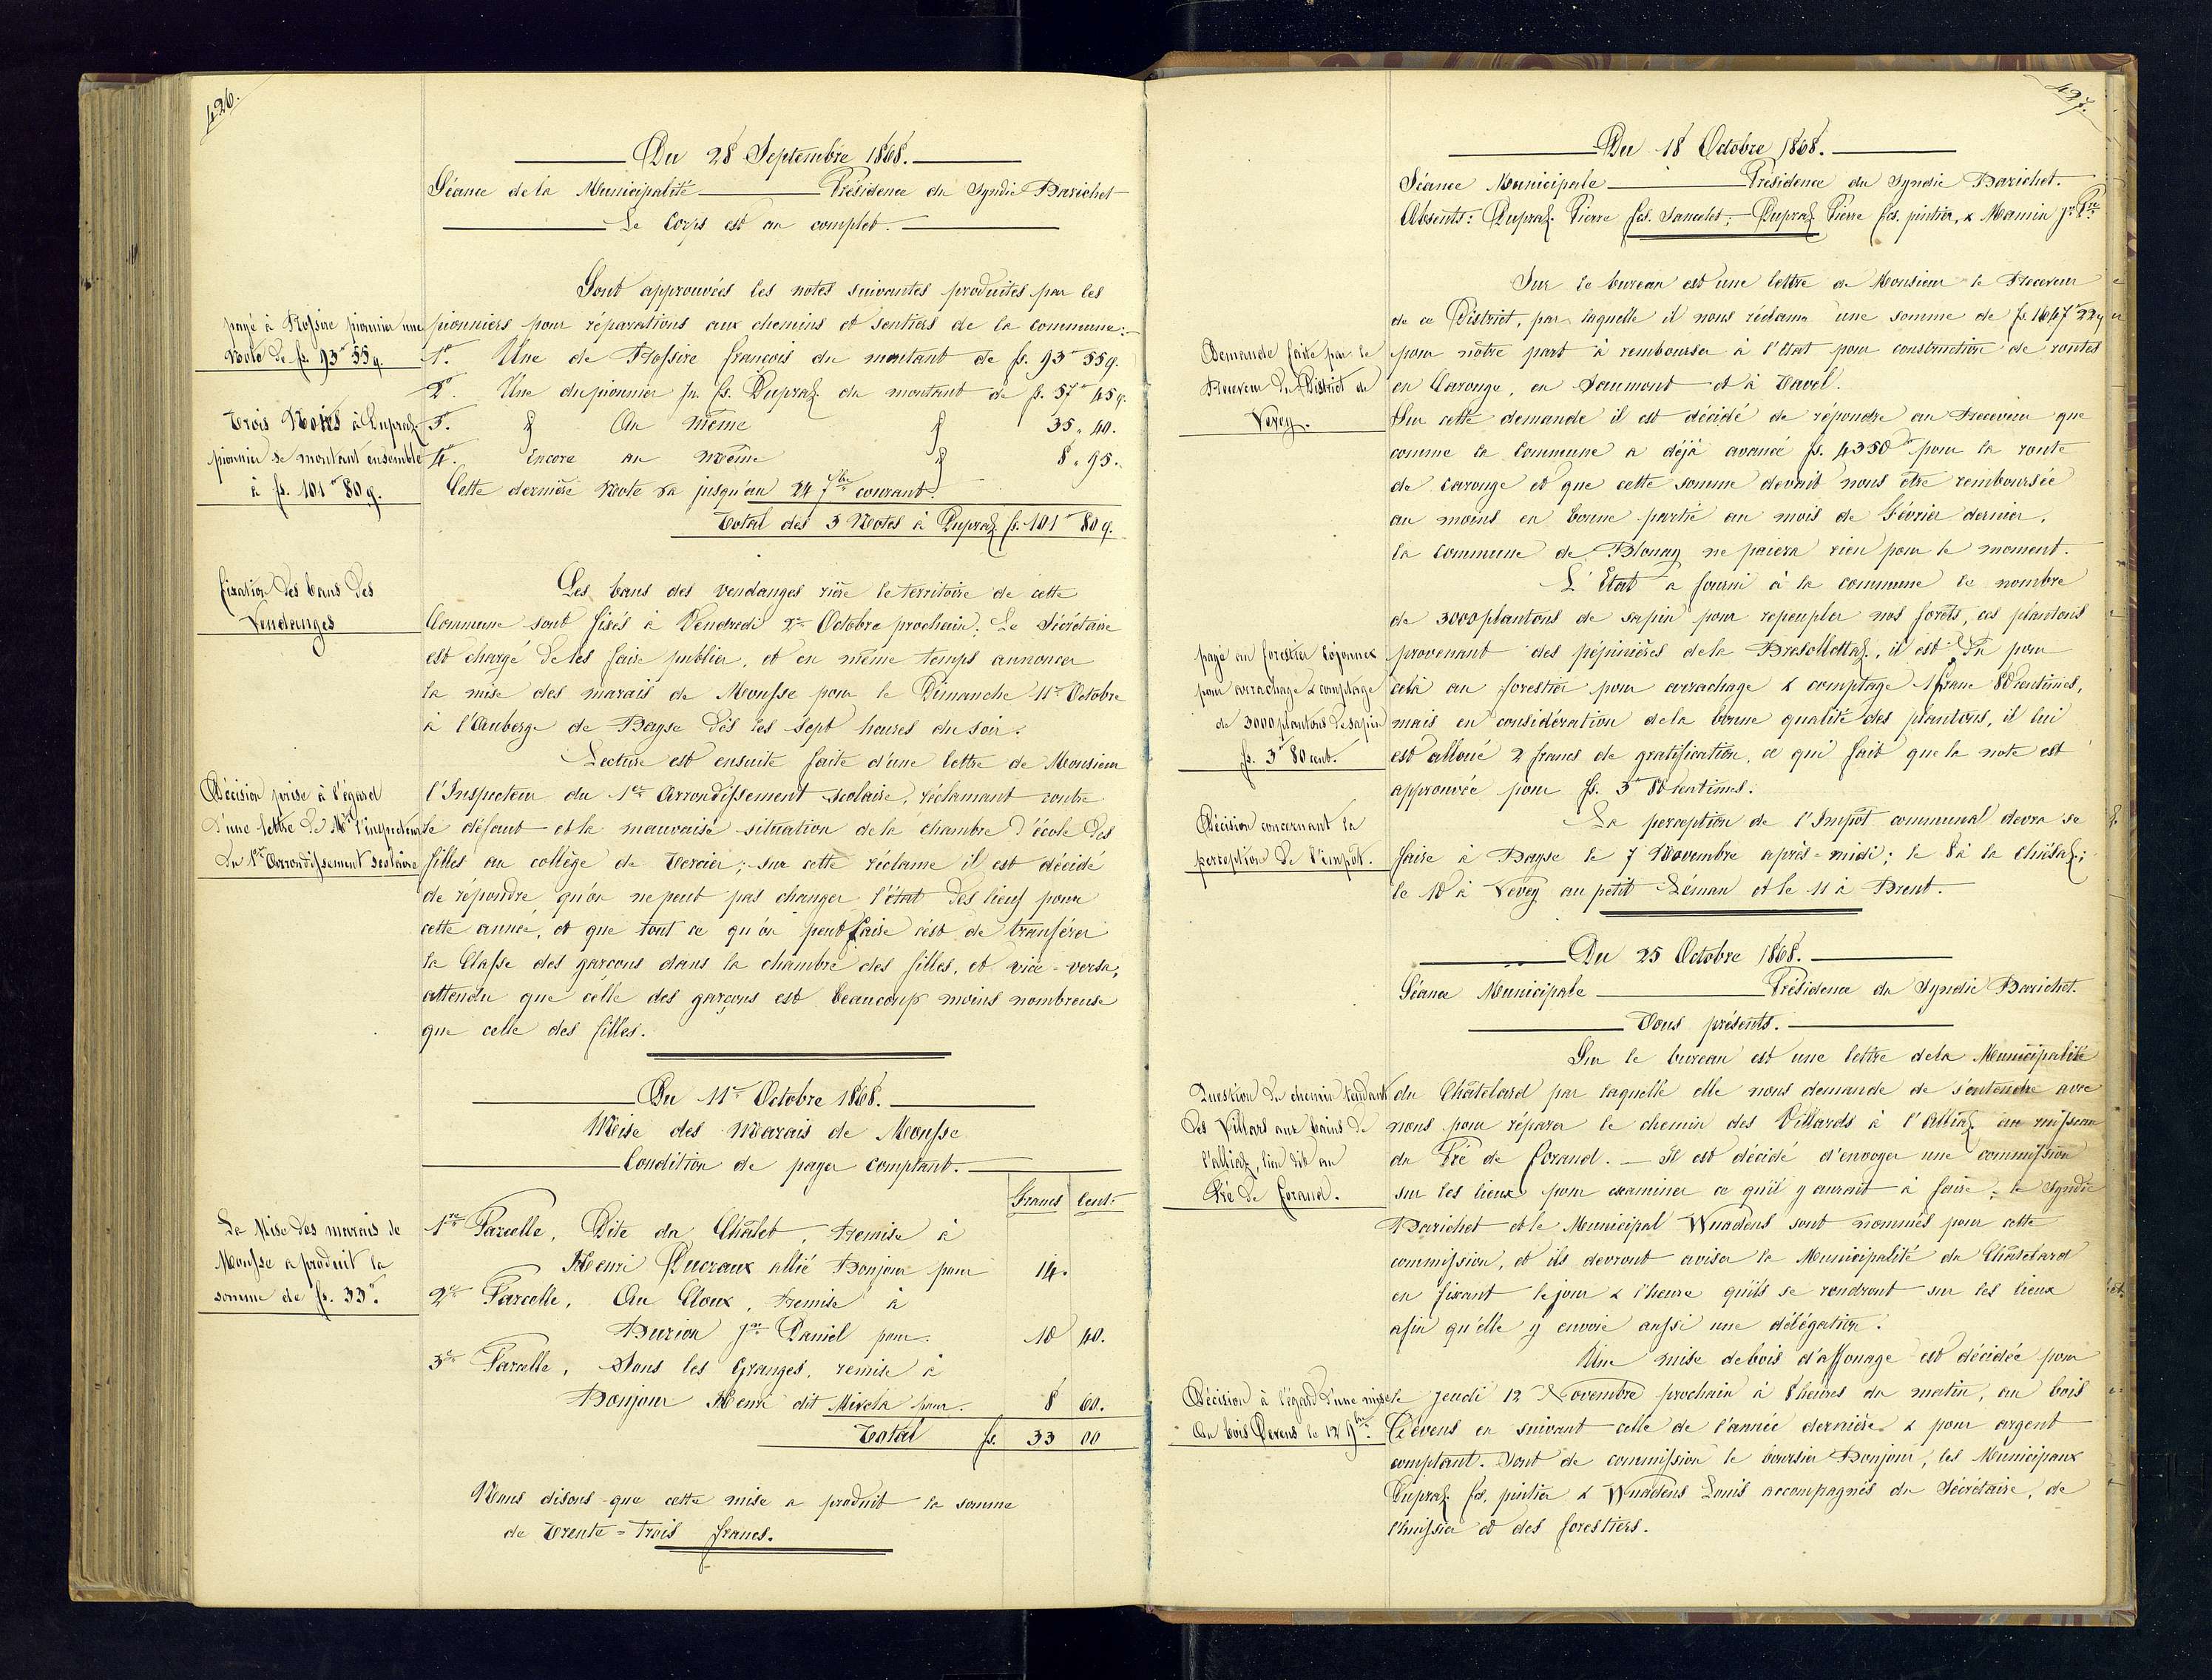 426.
Du 28 Septembre 1868.
Séance de la Municipalité Présidence du Syndic Barichet
Le Corps est au complet.
Sont approuvées les notes suivantes produites par les
payé à Rossire pionnier une
note de fs. 93" 55 q.
pionniers pour réparations aux chemins et sentiers de la commune:
1º. Une de Rossire françois du montant de fs. 93" 55q.
2º. Une du pionnier Jn. fs. Dupraz du montant de fs. 57" 45q.
Trois Notes à Dupraz
pionnier se montant ensemble
à fs. 101" 80 q.
3º. Au même 35" 40.
4º. Encore au même 8" 95.
Cette dernière Note va jusqu'au 24 7bre courant.
Total des 3 Notes à Dupraz fs. 101" 80 q.
fixation des bans des
Vendanges
Les bans des vendanges rière le territoire de cette
Commune sont fixés à Vendredi 2e Octobre prochain; Le Sécrétaire
est chargé de les faire publier, et en même temps annoncer
la mise des marais de Mousse pour le Dimanche 11e Octobre
à l'Auberge de Bayse dès les sept heures du soir.
Lecture est ensuite faite d'une lettre de Monsieur
Décision prise à l'égard
d'une lettre de Mr l'inspecteur
du 1er Arrondissement scolaire
l'Inspecteur du 1er Arrondissement scolaire, réclamant contre
le défaut et la mauvaise situation de la chambre d'école des
filles au collège de Tercier; sur cette réclame il est décidé
de répondre qu'on ne peut pas changer l'état des lieux pour
cette année, et que tout ce qu'on peut faire c'est de transférer
la Classe des garçons dans la chambre des filles, et vice-versa,
attendu que celle des garçons est beaucoup moins nombreuse
que celle des filles.
Du 11e Octobre 1868.
Mise des Marais de Mousse
Condition de payer comptant.
Francs Cent:
La Mise des marais de
Mousse a produit la
somme de fs. 33".
1re Parcelle, Dite du Châlet, Remise à
Henri Ducraux allié Bonjour pour 14.
2e Parcelle, Au Cloux, Remise à
Burion Jn Daniel pour. 10 40.
3e Parcelle, Sous les Granges, remise à
Bonjour Henri dit Mirela pour. 8 60.
Total fs. 33 00
Nous disons que cette mise a produit la somme
de Trente-Trois francs.
427.
Du 18 Octobre 1868.
Séance Municipale Présidence du Syndic Barichet.
Absents: Dupraz Pierre fs. Sancelet; Dupraz Pierre fs. pintier, & Mamin Jn Pre
Sur le bureau est une lettre de Monsieur le Receveur
de ce District, par laquelle il nous réclame une somme de fs. 1647" 22q
Demande faite par le
Receveur du District de
Vevey.
pour notre part à rembourser à l'Etat pour construction de routes
en Carouge, en Saumont et à Tavel.
Sur cette demande il est décidé de répondre au Receveur que
comme la Commune a déjà avancé fs. 4350" pour la route
de Carouge et que cette somme devait nous être remboursée
au moins en bonne partie au mois de Février dernier,
la Commune de Blonay ne paiera rien pour le moment.
L'Etat a fourni à la commune le nombre
de 3000 plantons de sapin pour repeupler nos forêts, ces plantons
payé au forestier Cojonnex
pour arrachage & comptage
de 3000 plantons de sapin
fs. 3" 80 cent.
provenant des pépinières de la Presollettaz, il est dû pour
celà au forestier pour arrachage & comptage 1 franc 80 centimes,
mais en considération de la bonne qualité des plantons, il lui
est alloué 2 francs de gratification, ce qui fait que la note est
approuvée pour fs. 3" 80 centimes.
Décision concernant la
perception de l'impôt.
La perception de l'Impôt communal devra se
faire à Bayse le 7 Novembre après-midi; le 8 à la Chiésaz;
le 10 à Vevey au petit Léman et le 11 à Brent.
Du 25 Octobre 1868.
Séance Municipale Présidence du Syndic Barichet.
Tous présents.
Sur le bureau est une lettre de la Municipalité
Question du chemin tendant
des Villars aux bains de
l'alliaz, lieu dit au
Pré de forand.
du Châtelard par laquelle elle nous demande de s'entendre avec
nous pour réparer le chemin des Villards à l'Alliaz au ruisseau
du Pré de forand. — Il est décidé d'envoyer une commission
sur les lieux pour examiner ce qu'il y aurait à faire; le Syndic
Barichet et le Municipal Wuadens sont nommés pour cette
commission, et ils devront aviser la Municipalité du Châtelard
en fixant le jour & l'heure qu'ils se rendront sur les lieux
afin qu'elle y envoie aussi une délégation.
Une mise de bois d'affouage est décidée pour
Décision à l'égard d'une mise
du bois Devens le 12 9bre.
le jeudi 12 Novembre prochain à 8 heures du matin, au bois
Devens en suivant celle de l'année dernière & pour argent
comptant. Sont de commission le boursier Bonjour, les Municipaux
Dupraz fs. pintier & Wuadens Louis accompagnés du Sécrétaire, de
l'huissier et des forestiers.